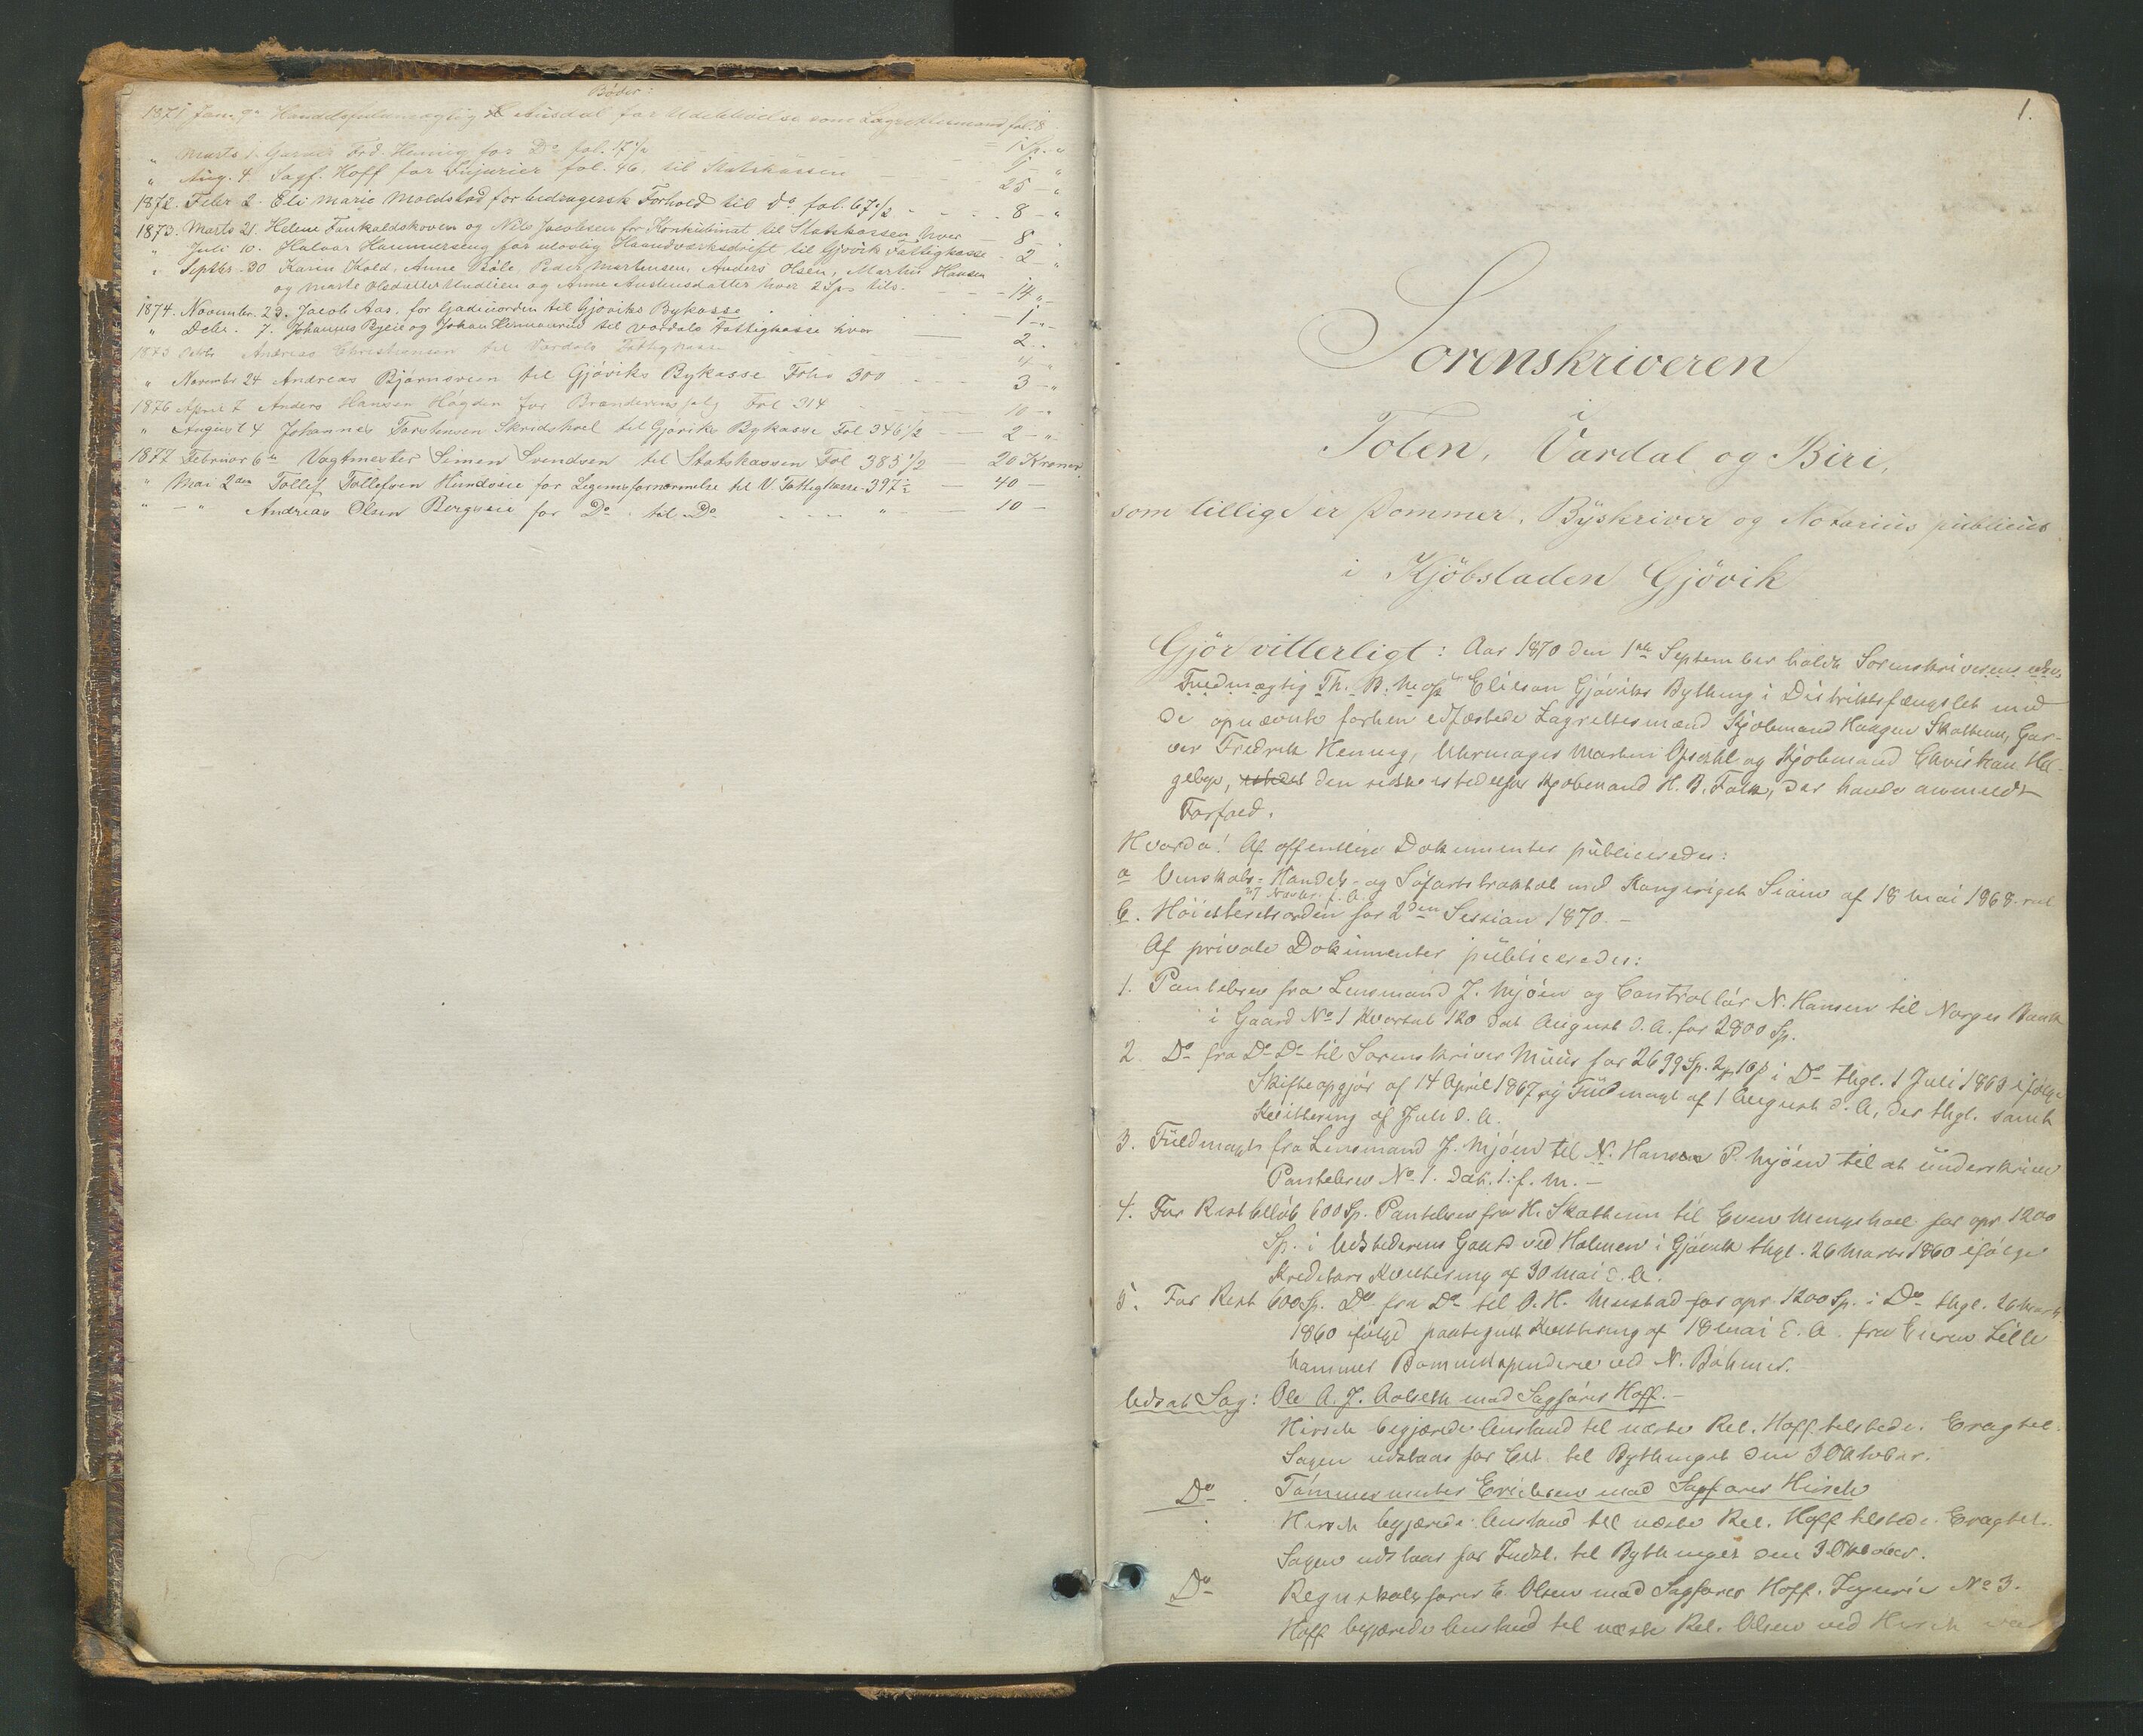 Bøder:
1871 Jan. 9de Handelsfuldmægtig Ausdal for Udeblivelse som Lagrettesmand fol. 8 — 1 Sp. "
" Marts 1. Garver Frd. Hennig for Do fol. 17 1/2 — 1 — "
" Aug. 4. Sagf. Hoff for Injurier fol. 46, til Statskassen — 25 — "
1872. Febr. 2. Eli Marie Moldstad for bedragersk Forhold til Do fol. 67 1/2 — 8 — "
1873. Marts 21. Helene Fankaldskoven og Nils Jacobsen for Konkubinat til Statskassen hver — 8 — "
" Juli 10. Halvor Hammerseng for ulovlig Haandværksdrift til Gjøvik Fattigkasse — 2 — "
" Septbr. 30 Karin Kold, Anne Bøle, Peder Mortensen, Anders Olsen, Martin Hansen
og Marte Olsdatter Undlien og Anne Austensdatter hver 2 Sp. tils. — 14 " —
1874. November 23. Jacob Aas, for Gadeuorden til Gjøviks Bykasse — 1 " —
" Decbr. 7. Johannes Bzeie og Johan Hermanrud til Vardals Fattigkasse hver — 2 "
1875 Octbr Andreas Christiansen til Vardals Fattigkasse — 4 "
" Novembr 24 Andreas Bjørnsveen til Gjøviks Bykasse Folio 300 — 3 — "
1876 April 7 Anders Hansen Høgden for Brændevinssalg Fol 314 — 10 — "
" August 4 Johannes Torstensen Skridshoel til Gjøviks Bykasse Fol 346 1/2 — 2 — "
1877 Februar 6te Vagtmester Simen Svendsen til Statskassen Fol 385 1/2 — 20 Kroner
" Mai 2den Tollef Tollefsen Hundseie for Legemsfornærmelse til V. Fattigkasse 397 1/2 — 40 —
" — " Andreas Olsen Bergseie for Do til Do " — 10 —
1.
Sorenskriveren
i
Toten, Vardal og Biri,
som tillige er Dommer, Byskriver og Notarius publicus
i Kjöbstaden Gjövik
Gjör vitterligt: Aar 1870 den 1ste September holdt Sorenskriverens edsv.
Fuldmægtig Th. B. Elieson Gjöviks Bything i Distriktsfængslet med
de opnævnte forhen edfæstede Lagrettesmænd Kjöbmand Haagen Skattum, Gar-
ver Fredrik Hennig, Uhrmager Martin Opsahl og Kjöbmand Christian Hel-
geby, den sidste istedetfor Kjöbmand H. B. Falk, der havde anmeldt
Forfald.
Hvorda: Af offentlige Dokumenter publiceredes:
a Venskabs- Handels- og Söfartstraktat med Kongeriget Siam af 18 Mai 1868.
b. Höiesteretsorden for 2den Session 1870. —
Af private Dokumenter publiceredes:
1. Pantebrev fra Lensmand J. Mjöen og Controllör N. Hansen til Norges Bank
i Gaard No 1 Kvartal 120 dat August d. A. for 2800 Sp.
2. Do fra Do Do til Sorenskriver Muus for 2699 Sp. 2 16 ß i Do thgl. 1 Juli 1863 ifölge
Skifteopgjör af 14 April 1867 og Fuldmagt af 1 August d. A, der thgl. samt
Kvittering af Juli d. A.
3. Fuldmagt fra Lensmand J. Mjöen til N. Hansen P. Mjöen til at underskrive
Pantebrev No 1. Dat. 1. f. M. —
4. For Restbelöb 600 Sp. Pantebrev fra H. Skattum til Even Mengshoel for opr. 1200
Sp. i Udstederens Gaard ved Holmen i Gjövik thgl. 26 Marts 1860 ifölge
Kreditors Kvittering af 30 Mai d. A.
5. For Rest 600 Sp. Do fra Do til O. H. Mustad for opr. 1200 Sp. i Do thgl. 26 Marts
1860 ifölge paategnet Kvittering af 18 Mai d. A. fra Eieren Lille
hammer Bomuldspinderi ved N. Böhmer.
Udsat Sag: Ole A. J. Aolseth mod Sagförer Hoff. —
Hirsch begjærede Anstand til næste Ret. Hoff tilstede. Eragtet.
Sagen udstaar for Cit. til Bythinget den 3 Oktober.
Do Tömmermester Erichsen mod Sagförer Hirsch
Hirsch begjærede Anstand til næste Ret. Hoff tilstede. Eragtet.
Sagen udstaar for Indst. til Bythinget den 3 Oktober.
Do Regnskabsförer E. Olsen mod Sagförer Hoff. Injurie No 3.
Hoff begjærede Anstand til næste Ret. Olsen ved Hirsch var